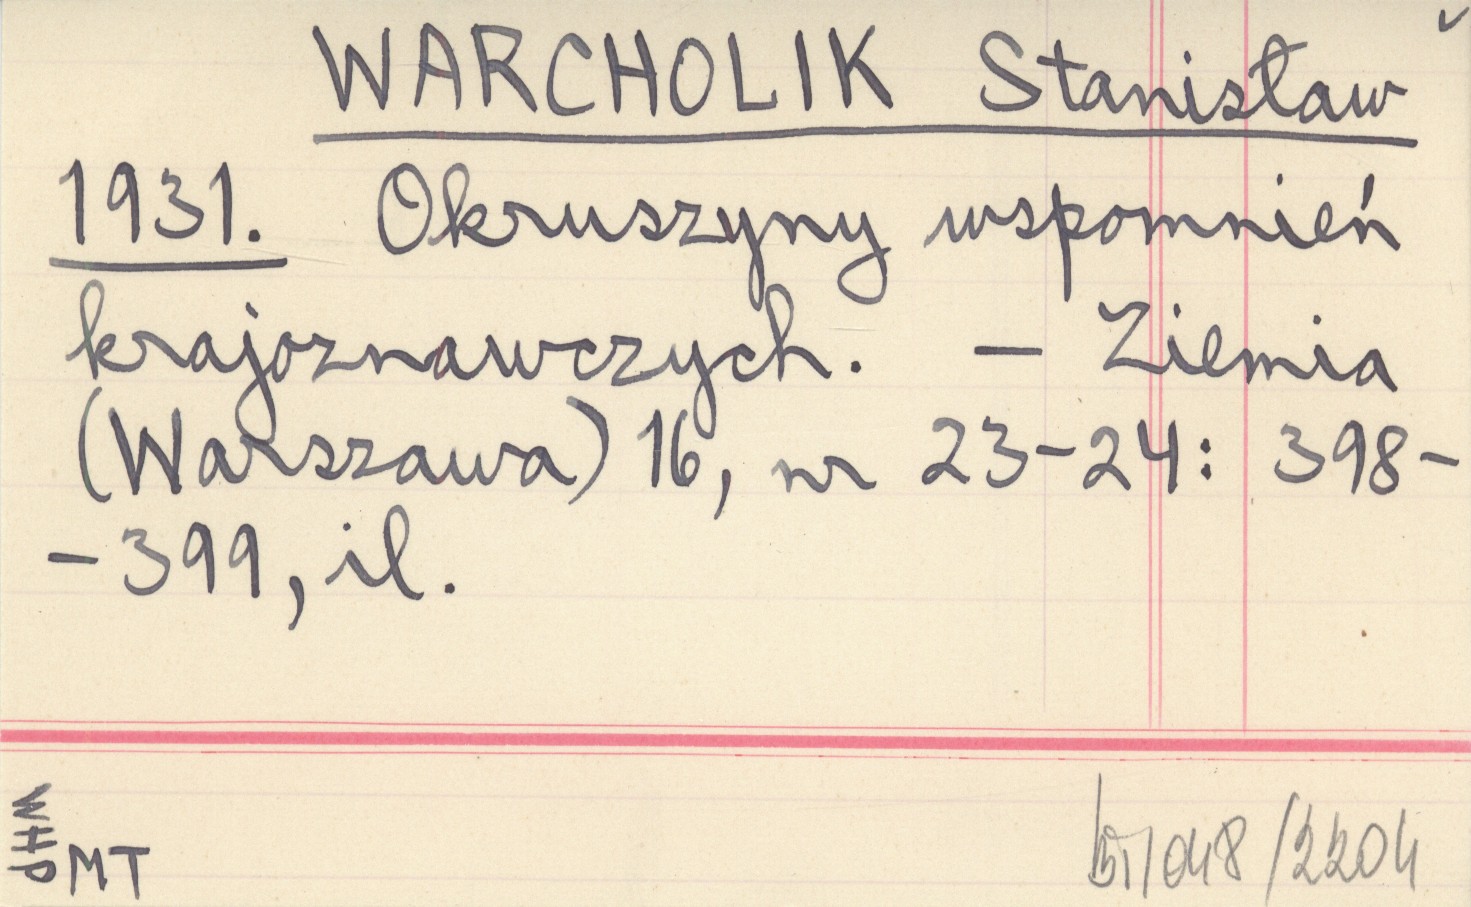 WARCHOLIK Stanisław
1931. Okruszyny wspomnień
krajoznawczych. — Ziemia
(Warszawa) 16, nr 23-24: 398-
-399, il.
WHP
MT
/048/2204